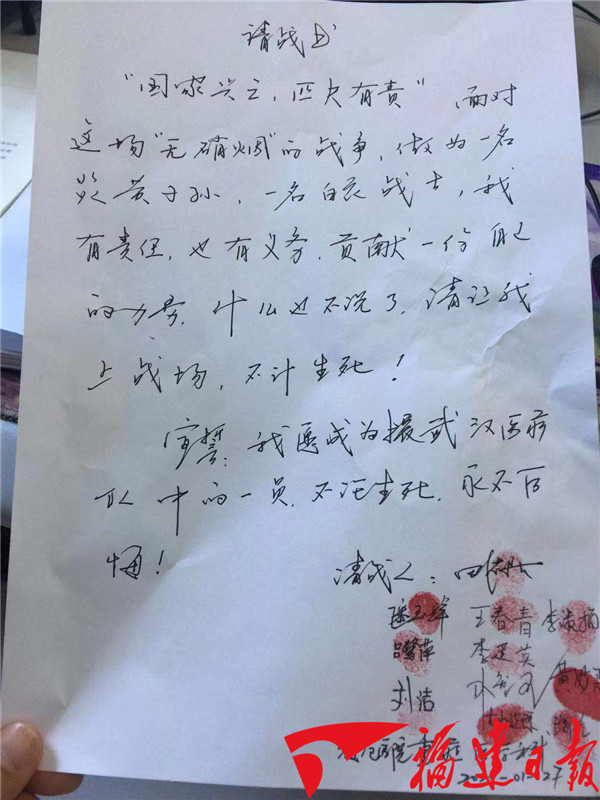 请战书
"国家兴亡，匹夫有责" 面对
这场"无硝烟"的战争，做为一名
炎黄子孙，一名白衣战士，我
有责任，也有义务，贡献一份自己
的力量，什么也不说了，请让我
上战场，不计生死！
宣誓：我愿成为援武汉医疗
队中的一员，不论生死，永不后
悔！
请战人：
王春青
李
刘洁
福建日报